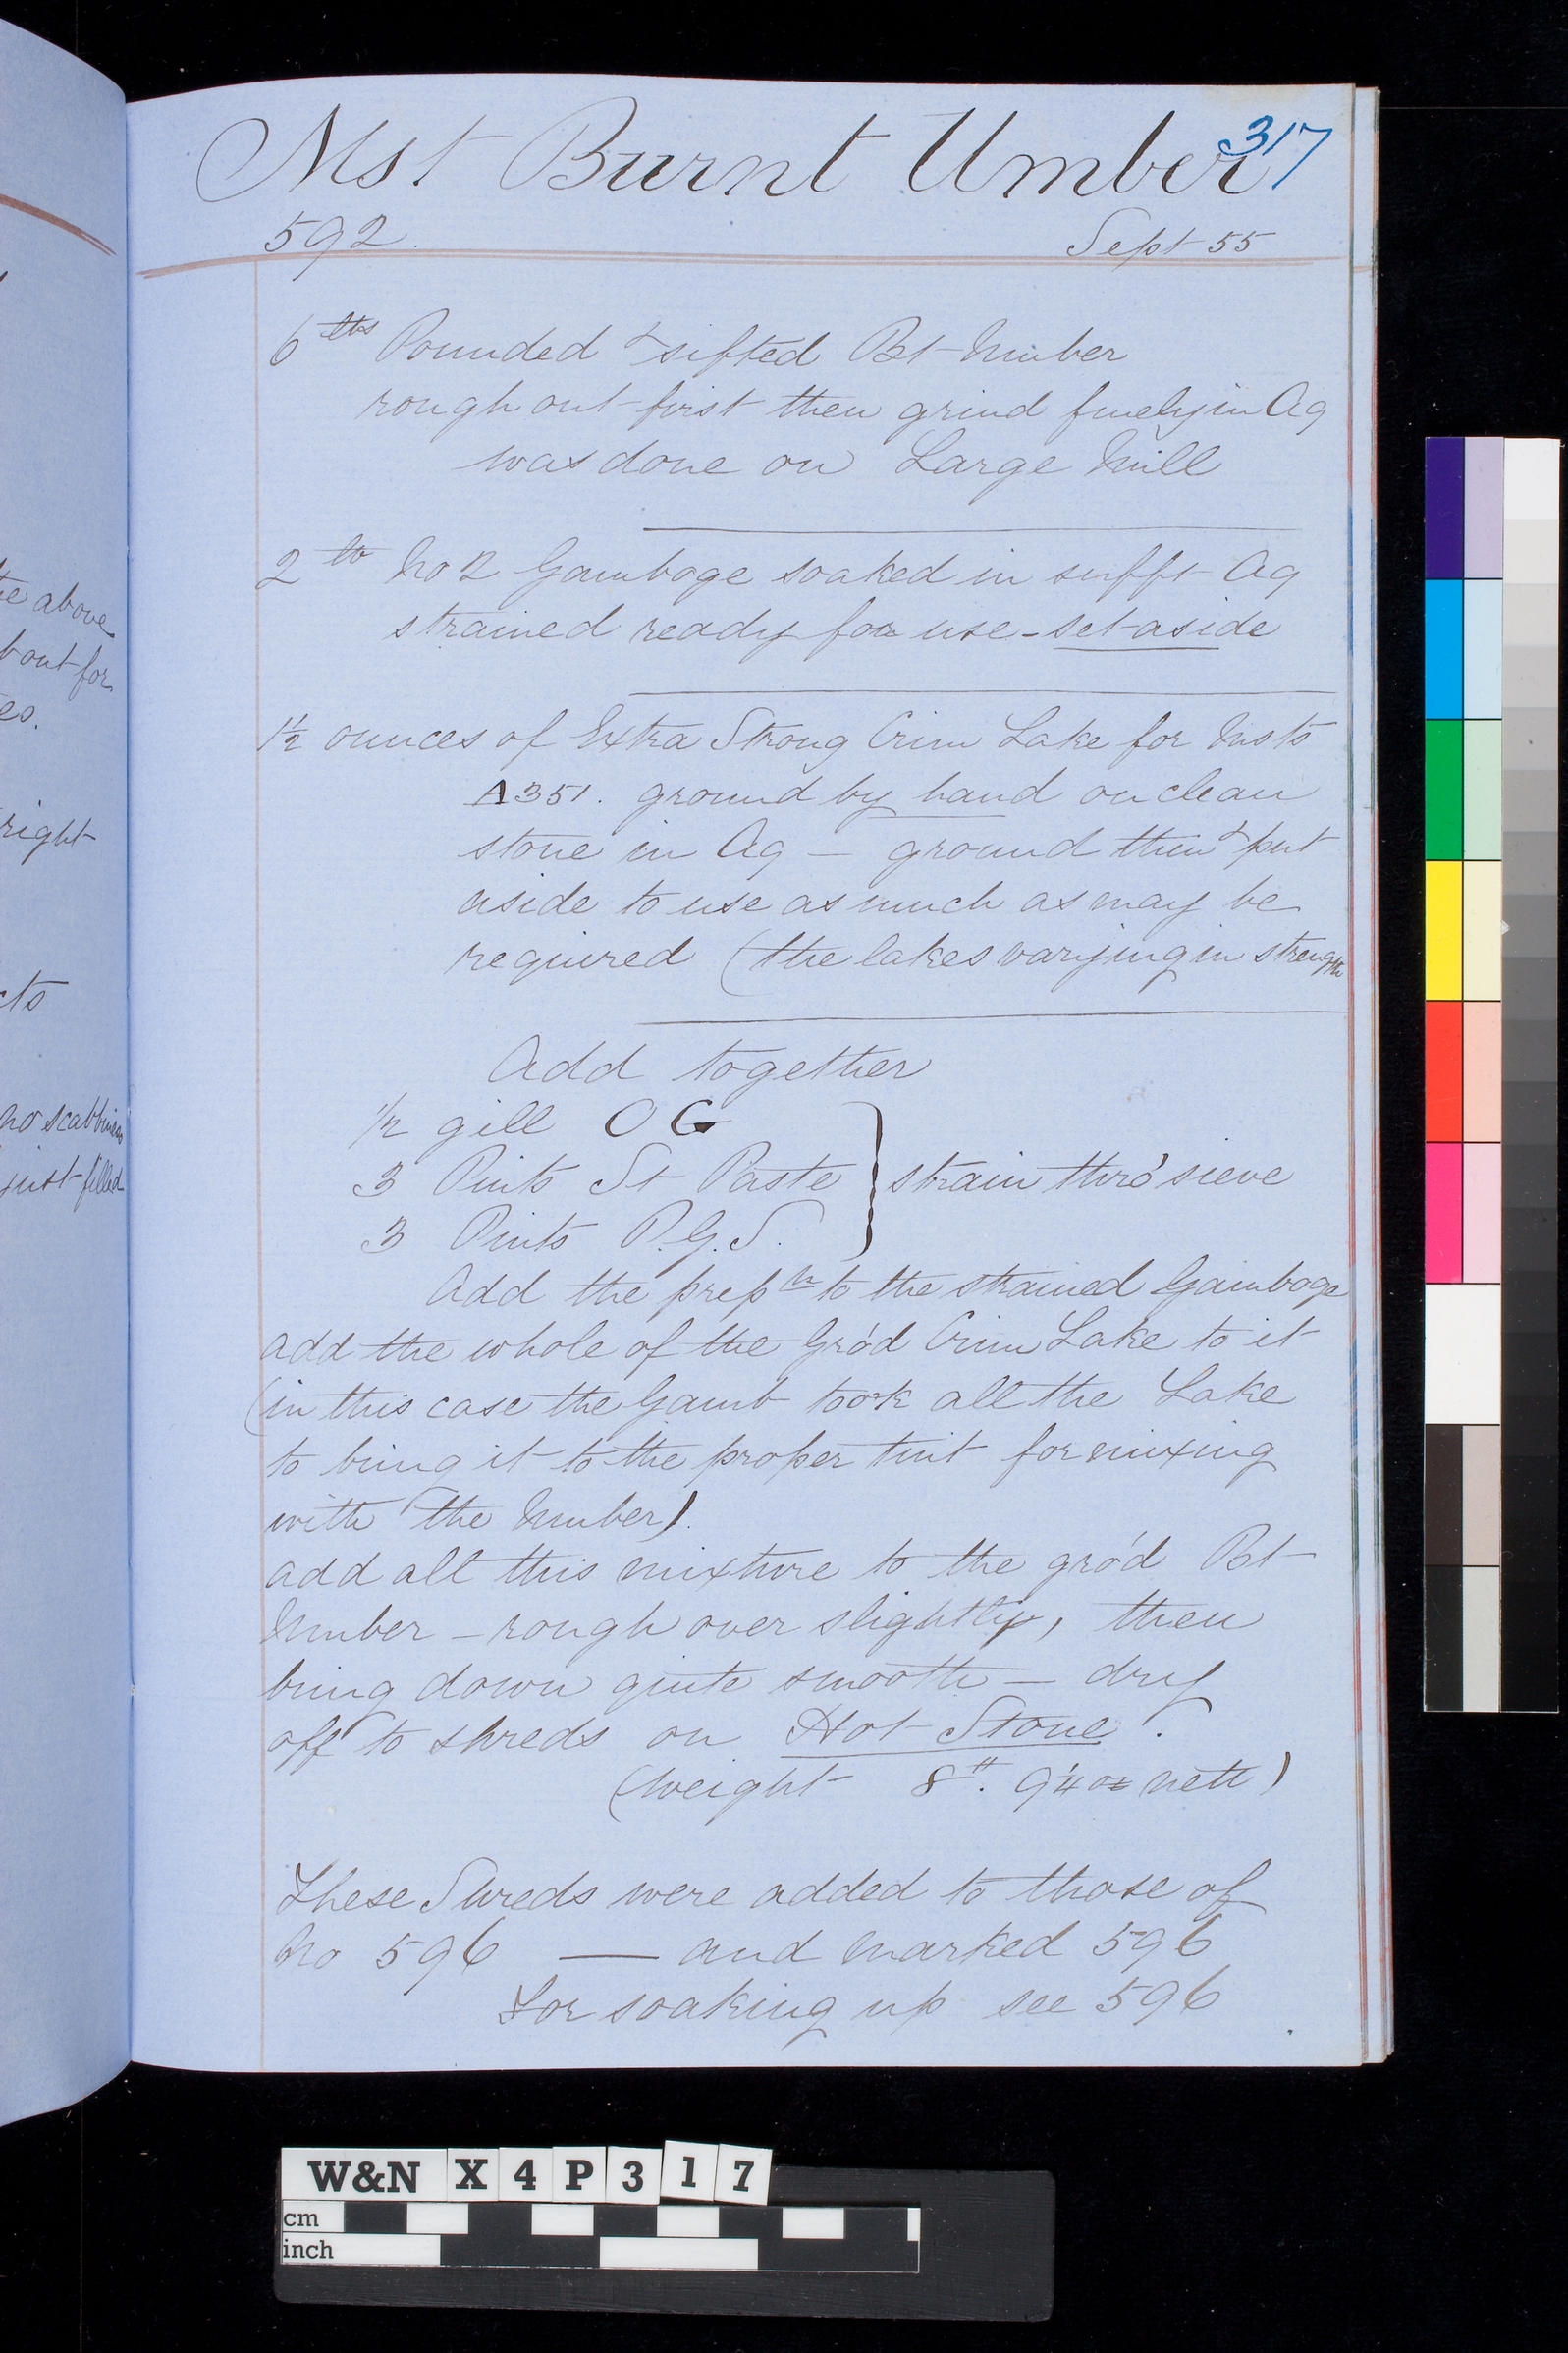 317
Mst Burnt Umber
592. Sept 55
6 lbs Pounded & sifted Bt Umber
rough out first then grind finely in Aq
was done on Large Mill
2 lb No 2 Gamboge soaked in sufft Aq
strained ready for use - set aside
1½ ounces of Extra Strong Crim Lake for Msts
A351. ground by hand on clean
stone in Aq — ground thin & put
aside to use as much as may be
required (the lakes varying in strength
Add together
½ gill O G
3 Pints St Paste } strain thro' sieve
3 Pints P.G.S.
Add the prepn to the strained Gamboge
add the whole of the Gro'd Crim Lake to it
(in this case the Gamb took all the Lake
to bring it to the proper tint for mixing
with the Umber).
add all this mixture to the gro'd Bt
Umber – rough over slightly, then
bring down quite smooth — dry
off to shreds on Hot Stone.
(Weight 8 lb. 9¼ oz nett)
These Shreds were added to those of
No 596 — and marked 596
For soaking up see 596
te above
out for
right
cts
no scabbiness
just filled
W&N X4P317
cm
inch